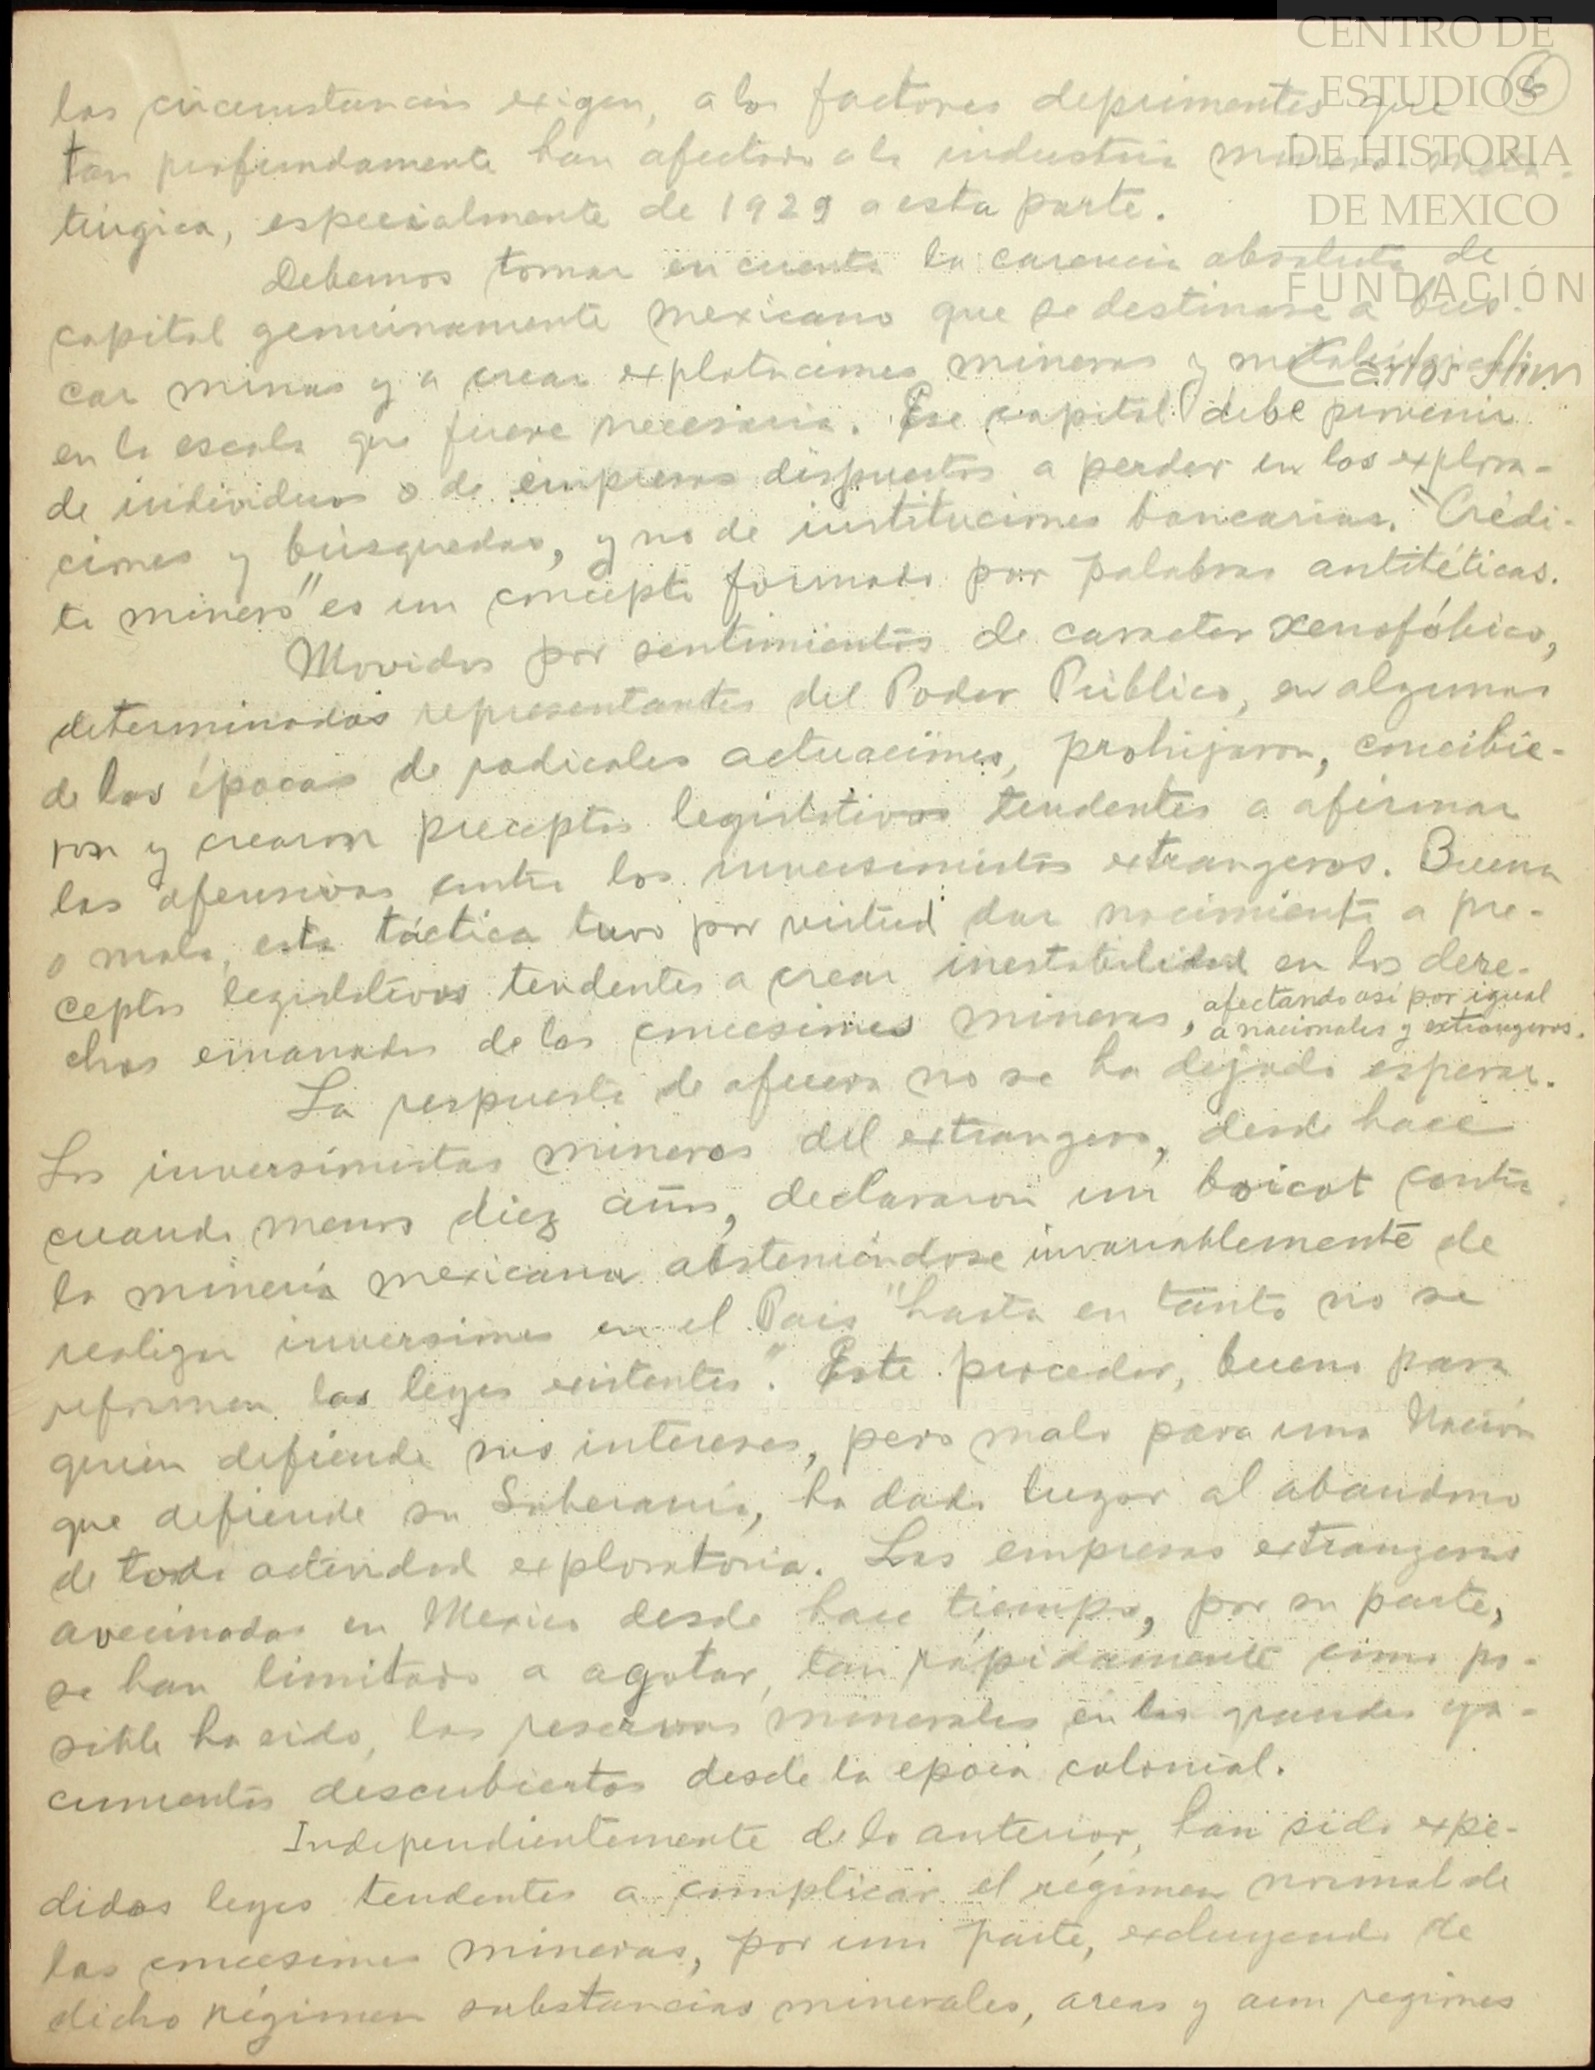 CENTRO DE
ESTUDIOS
DE HISTORIA
DE MEXICO
FUNDACIÓN
Carlos Slim
6
las circunstancias exigen, a los factores deprimentes que
tan profundamente han afectado a la industria minero meta-
lúrgica, especialmente de 1929 a esta parte.
Debemos tomar en cuenta la carencia absoluta de
capital genuinamente mexicano que se destinase a bus-
car minas y a crear explotaciones mineras y metalúrgicas
en la escala que fuere necesaria. Ese capital debe provenir
de individuos o de empresas dispuestos a perder en las explora-
ciones y búsquedas, y no de instituciones bancarias. "Crédi-
to minero" es un concepto formado por palabras antitéticas.
Movidos por sentimientos de caracter xenofóbico,
determinados representantes del Poder Público, en algunas
de las épocas de radicales actuaciones, prohijaron, concibie-
ron y crearon preceptos legislativos tendentes a afirmar
las ofensivas contra los inversionistas extrangeros. Buena
o mala, esta táctica tuvo por virtud dar nacimiento a pre-
ceptos legislativos tendentes a crear inestabilidad en los dere-
chos emanados de las concesiones mineras, afectando así por igual
a nacionales y extrangeros.
La respuesta de afuera no se ha dejado esperar.
Los inversionistas mineros del extrangero, desde hace
cuando menos diez años, declararon un boicot contra
la minería mexicana absteniéndose invariablemente de
realizar inversiones en el Pais "hasta en tanto no se
reformen las leyes existentes". Este proceder, bueno para
quien defiende sus intereses, pero malo para una Nación
que defiende su Soberanía, ha dado lugar al abandono
de toda actividad exploratoria. Las empresas extrangeras
avecinadas en Mexico desde hace tiempo, por su parte,
se han limitado a agotar, tan rápidamente como po-
sible ha sido, las reservas minerales en los grandes ya-
cimientos descubiertos desde la epoca colonial.
Independientemente de lo anterior, han sido expe-
didas leyes tendentes a complicar el régimen normal de
las concesiones mineras, por una parte, excluyendo de
dicho régimen substancias minerales, areas y aun regiones